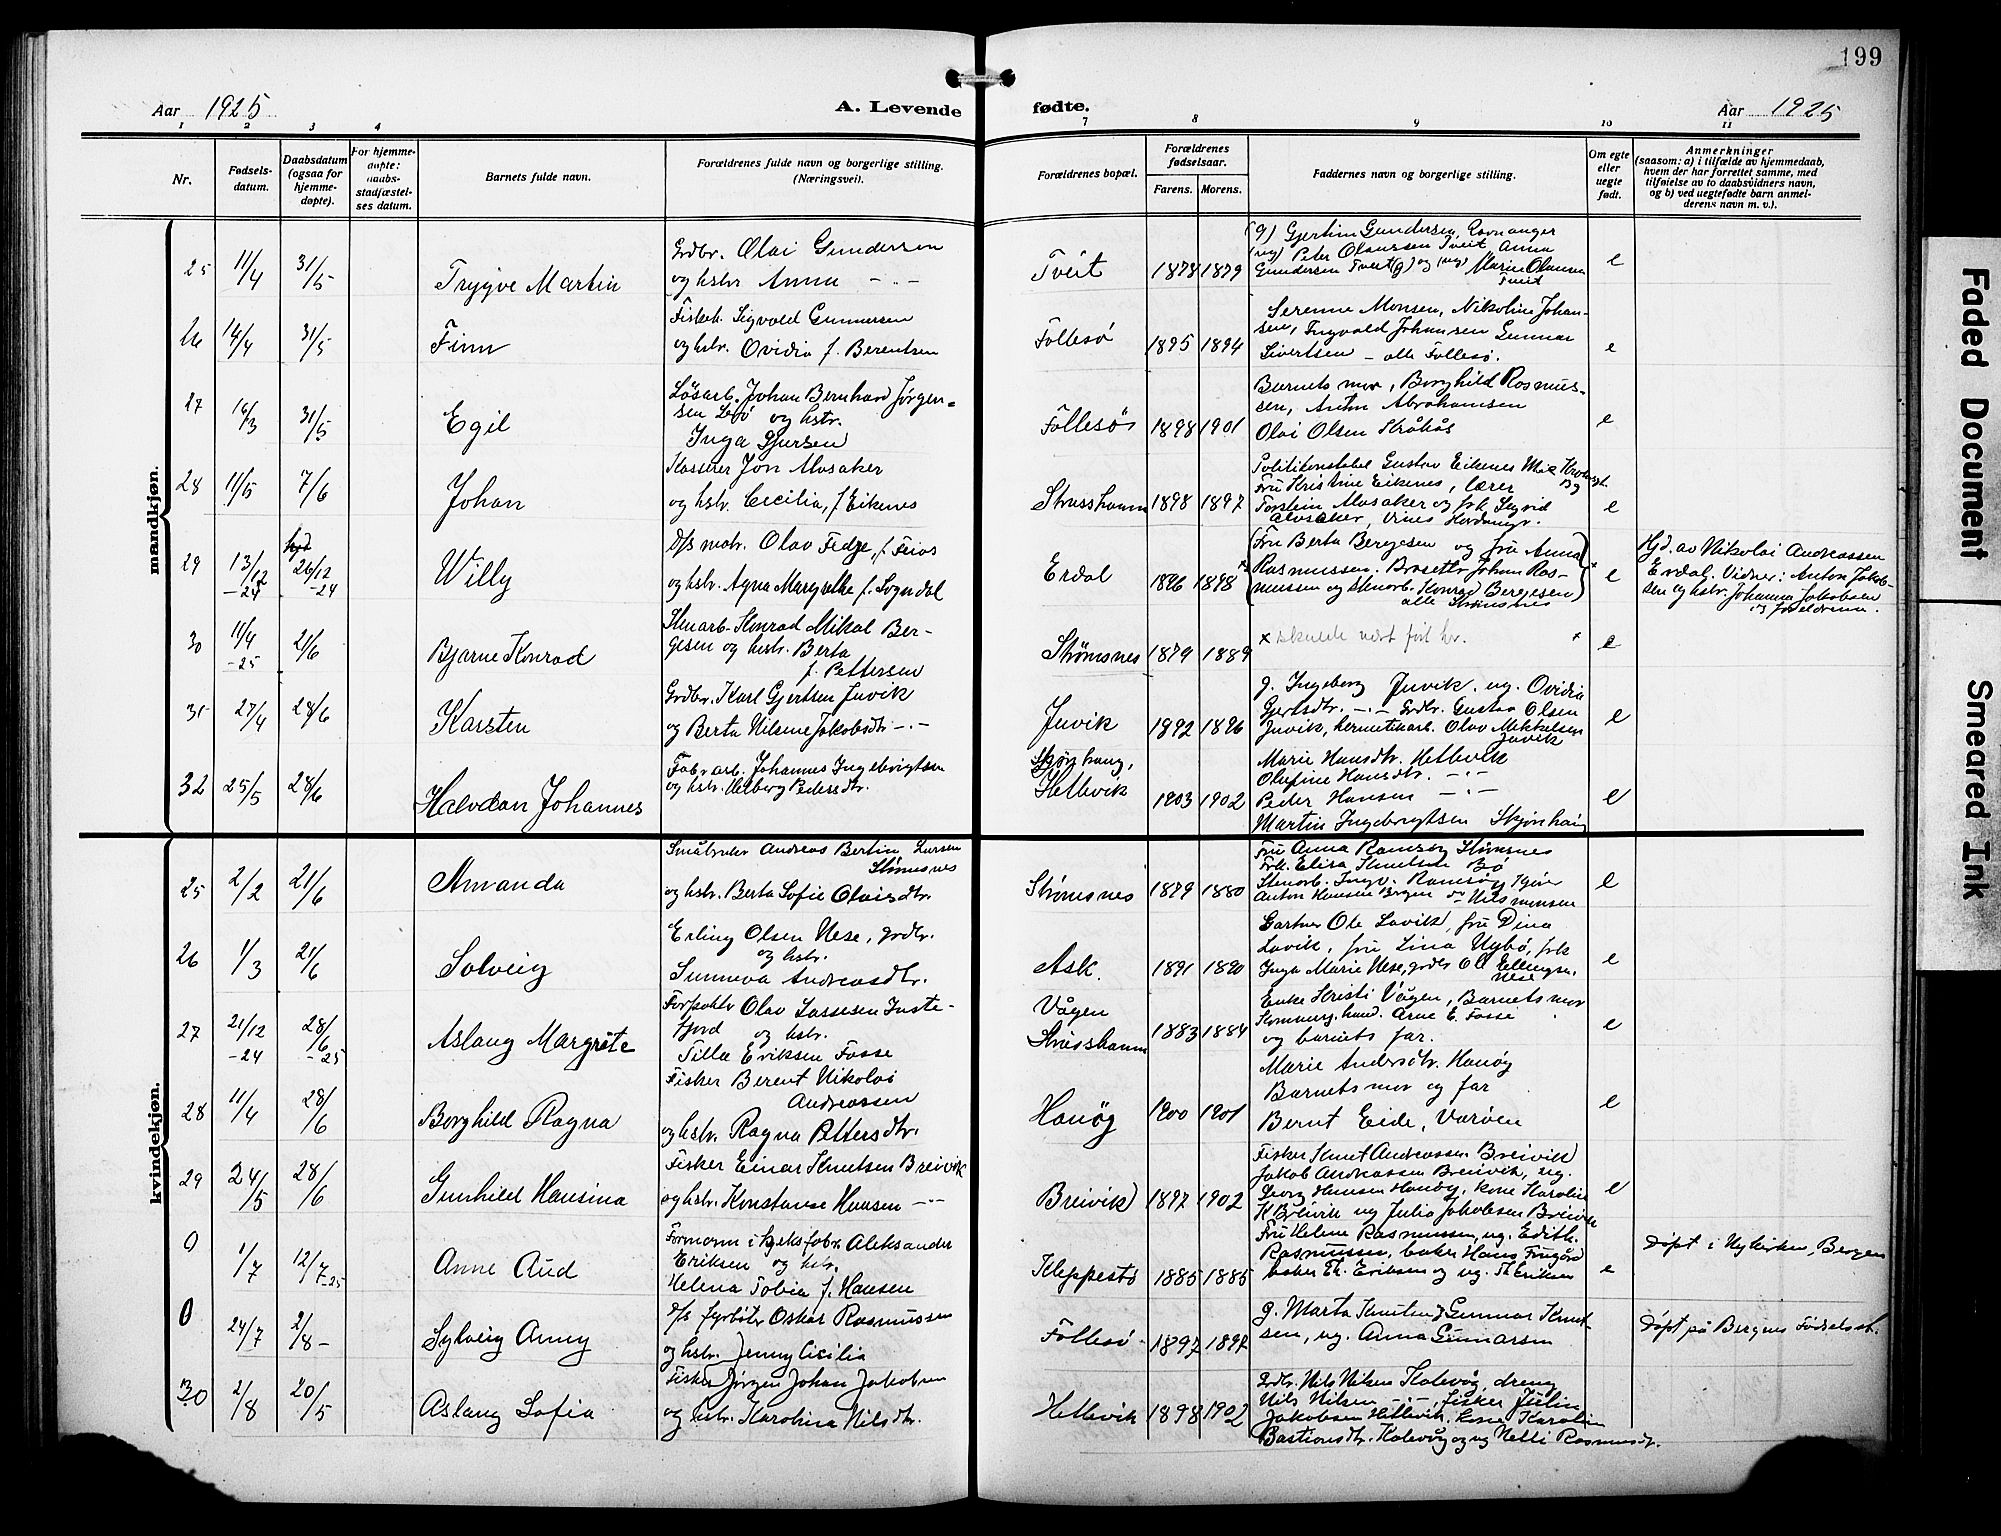 199
Aar 1925
A. Levende
fødte.
Aar 1925
1 2 3 4
7 8 9 10 11
Nr.
Fødsels-
datum.
Daabsdatum
(ogsaa for
hjemme-
døpte).
For hjemme-
døpte:
daabs-
stadfæstel-
ses datum.
Barnets fulde navn.
Forældrenes fulde navn og borgerlige stilling.
(Næringsvei).
Forældrenes bopæl.
Forældrenes
fødselsaar.
Farens. Morens.
Faddernes navn og borgerlige stilling.
Om egte
eller
uegte
født.
Anmerkninger
(saasom: a) i tilfælde av hjemmedaab,
hvem der har forrettet samme, med
tilføielse av to daabsvidners navn,
og b) ved uegtefødte barn anmel-
derens navn m. v.).
mandkjøn.
25 11/4 31/5 Trygve Martin
Grdbr. Olai Gundersen
og hstr Anna -"-
Tveit 1878 1879
(g) Gjertine Gundersen, Ravnanger
(ug) Peter Olaussen Tveit Anna
Gundersen Tveit (g) og (ug) Marie Olaussen
Tveit
e
26 14/4 31/5 Finn
Fisker Sigvald Gunnarsen
og hstr. Ovidia f. Berentsen
Follesø 1895 1894
Serenne Monsen, Nikoline Johan-
sen, Ingvald Johansen Gunnar
Sivertsen - alle Follesø.
e
27 16/3 31/5 Egil
Løsarb. Johan Bernhard Jørgen-
sen og hstr.
Inga
Follesø 1898 1901
Barnets mor, Borghild Rasmus-
sen, Anton Abrahamsen
Olai Olsen Kråkås
e
28 11/5 7/6 Johan
Kasserer Jon Alvsaker
og hstr. Cecilia, f Eikenes
Strusshamn 1898 1897
Politikonstabel Gustav Eikenes
Fru Kristine Eikenes, lærer
Torstein Alvsaker og frk Sigrid
Alvsaker,
e
29 13/12 -24 hjd 26/12 -24 Willy
D/s matr. Olav Fedje, f. Feios
og hstr. Agna Margrethe f. Sogndal
Erdal 1896 1898
(Fru Berta Bergesen og fru Anna
Rasmussen. Johan Ras-
mussen og stenarb. Konrad Bergesen)
alle Strømsnes
e
Hjd. av Nikolai Andreassen
Erdal. Vidner: Anton Jakob-
sen og hstr. Johanna Jakobsen
og foreldrene.
30 11/4 -25 21/6 Bjarne Konrad
Stenarb. Konrad Mikal Ber-
gesen og hstr. Berta
f. Pettersen
Strømsnes 1879 1889
x skulde vært ført her. x
e
31 27/4 28/6 Karsten
Grdbr. Karl Gjertsen Juvik
og Berta Nilsine Jakobsdtr -"-
Juvik 1892 1896
g. Ingeborg Juvik. ug. Ovidia
Gjertsdtr. -"- Grdbr. Gustav Olsen
Juvik, hermetikarb. Olav Mikkelsen
Juvik
e
32 25/5 28/6 Halvdan Johannes
Fabr. arb. Johannes Ingebrigtsen
og hstr. Valborg Pedersdtr.
Skjønhaug,
Hetlevik
1903 1902
Marie Hansdtr. Hetlevik
Olefine Hansdtr. -"-
Peder Hansen -"-
Martin Ingebrigtsen Skjønhaug
e
kvindekjøn.
25 2/2 21/6 Amanda
Småbruker Andreas Bertin Larsen
Strømsnes
og hstr. Berta Sofie Olaisdtr.
Strømsnes 1879 1880
Fru Anna Ramsøy Strømsnes
Frk. Elisa Knutsen Bø
Stenarb. Ingv. Ramsøy
Anton Hansen Bergen Nils Monsen
e
26 1/3 21/6 Solveig
Erling Olsen Nese, grdbr.
og hstr.
Sunneva Andreasdtr.
Ask. 1891 1890
Gartner Ole Lavik, fru Dina
Lavik, fru Lina Nybø, frk
Inga Marie Nese, grdbr Ole Ellingsen.
Nese
e
27 21/12 -24 28/6 -25 Aslaug Margrete
Forpakter Olav Lassesen Juste-
fjord og hstr.
Tilla Eriksen Fosse
Vågen
Strusshamn
1883 1884
Enke Kristi Vågen, Barnets mor
Arne E. Fosse
og barnets far.
e
28 11/4 28/6 Borghild Ragna
Fisker Berent Nikolai
Andreassen
og hstr. Ragna Pettersdtr.
Hanøg 1900 1901
Marie Andersdtr. Hanøg
Barnets mor og far
Bernt Eide, Varøen
e
29 24/5 28/6 Gunhild Hansina
Fisker Einar Knutsen Breivik
og hstr. Konstanse Hansen -"-
Breivik 1897 1902
Fisker Knut Andreassen Breivik
Jakob Andreassen Breivik, ug.
Georg Hansen Hanøy, kone Karolin
K Breivik ug Julia Jakobsen Breivik
e
0 1/7 12/7-25 Anne Aud
Formann i kjeksfabr. Aleksander
Eriksen og hstr.
Helena Tobia f. Hansen
Kleppestø 1885 1885
Fru Helene Rasmussen, ug. Edith.
Rasmussen, baker Hans Frugård
baker Th. Eriksen og ug. Th Eriksen
e
Døpt i Nykirken, Bergen
0 24/7 2/8 - Sylveig Anny
D/s fyrbøter Oskar Rasmussen
og hstr. Jenny Cicilia
Follesø 1897 1897
g. Marta Knutsen, Gunnar Knut-
sen, ug. Anna Gunnarsen
Døpt på Bergens Fødselsst.
30 2/8 20/5 Aslaug Sofia
Fisker Jørgen Johan Jakobsen
og hstr. Karolina Nilsdtr.
Hetlevik 1898 1902
Grdbr. Nils Nilsen Kolevåg, dreng
Nils Nilsen -"-, fisker Julin
Jakobsen Hetlevik, kone Karolin
Bastiansdtr. Kolevåg og ug Nelli Rasmusdtr.
Faded Document
Smeared Ink